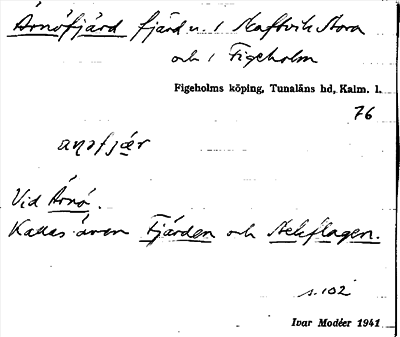 Ärnöfjärd fjärd u. / Saltvik Stora
och / Figeholm
Figeholms köping, Tunaläns hd, Kalm. l.
76
Vid Ärnö.
Kallas även Fjärden och
s. 102
Ivar Modéer 1941